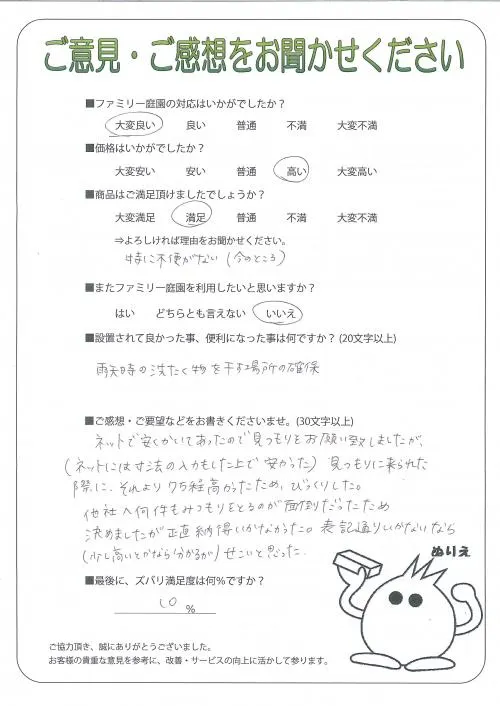 ご意見・ご感想をお聞かせください
■ファミリー庭園の対応はいかがでしたか？
大変良い 良い 普通 不満 大変不満
■価格はいかがでしたか？
大変安い 安い 普通 高い 大変高い
■商品はご満足頂けましたでしょうか？
大変満足 満足 普通 不満 大変不満
⇒よろしければ理由をお聞かせください。
特に不便がない（今のところ）
■またファミリー庭園を利用したいと思いますか？
はい どちらとも言えない いいえ
■設置されて良かった事、便利になった事は何ですか？(20文字以上)
雨天時の洗たく物を干す場所の確保
■ご感想・ご要望などをお書きくださいませ。(30文字以上)
ネットで安くかいてあったので見つもりをお願い致しましたが、
（ネットには寸法の入力もした上で安かった）見つもりに来られた
際に、それより7万程高かったため、びっくりした。
他社へ何件もみつもりをとるのが面倒だったため
決めましたが正直納得いかなかった。表記通りいかないなら
（少し高いとかなら分かるが）せこいと思った。
ぬりえ
■最後に、ズバリ満足度は何%ですか？
%
ご協力頂き、誠にありがとうございました。
お客様の貴重な意見を参考に、改善・サービスの向上に活かして参ります。